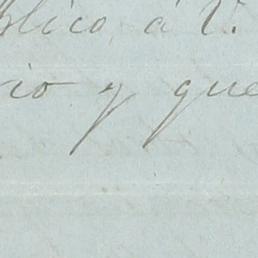 blico, á V.
rio y que